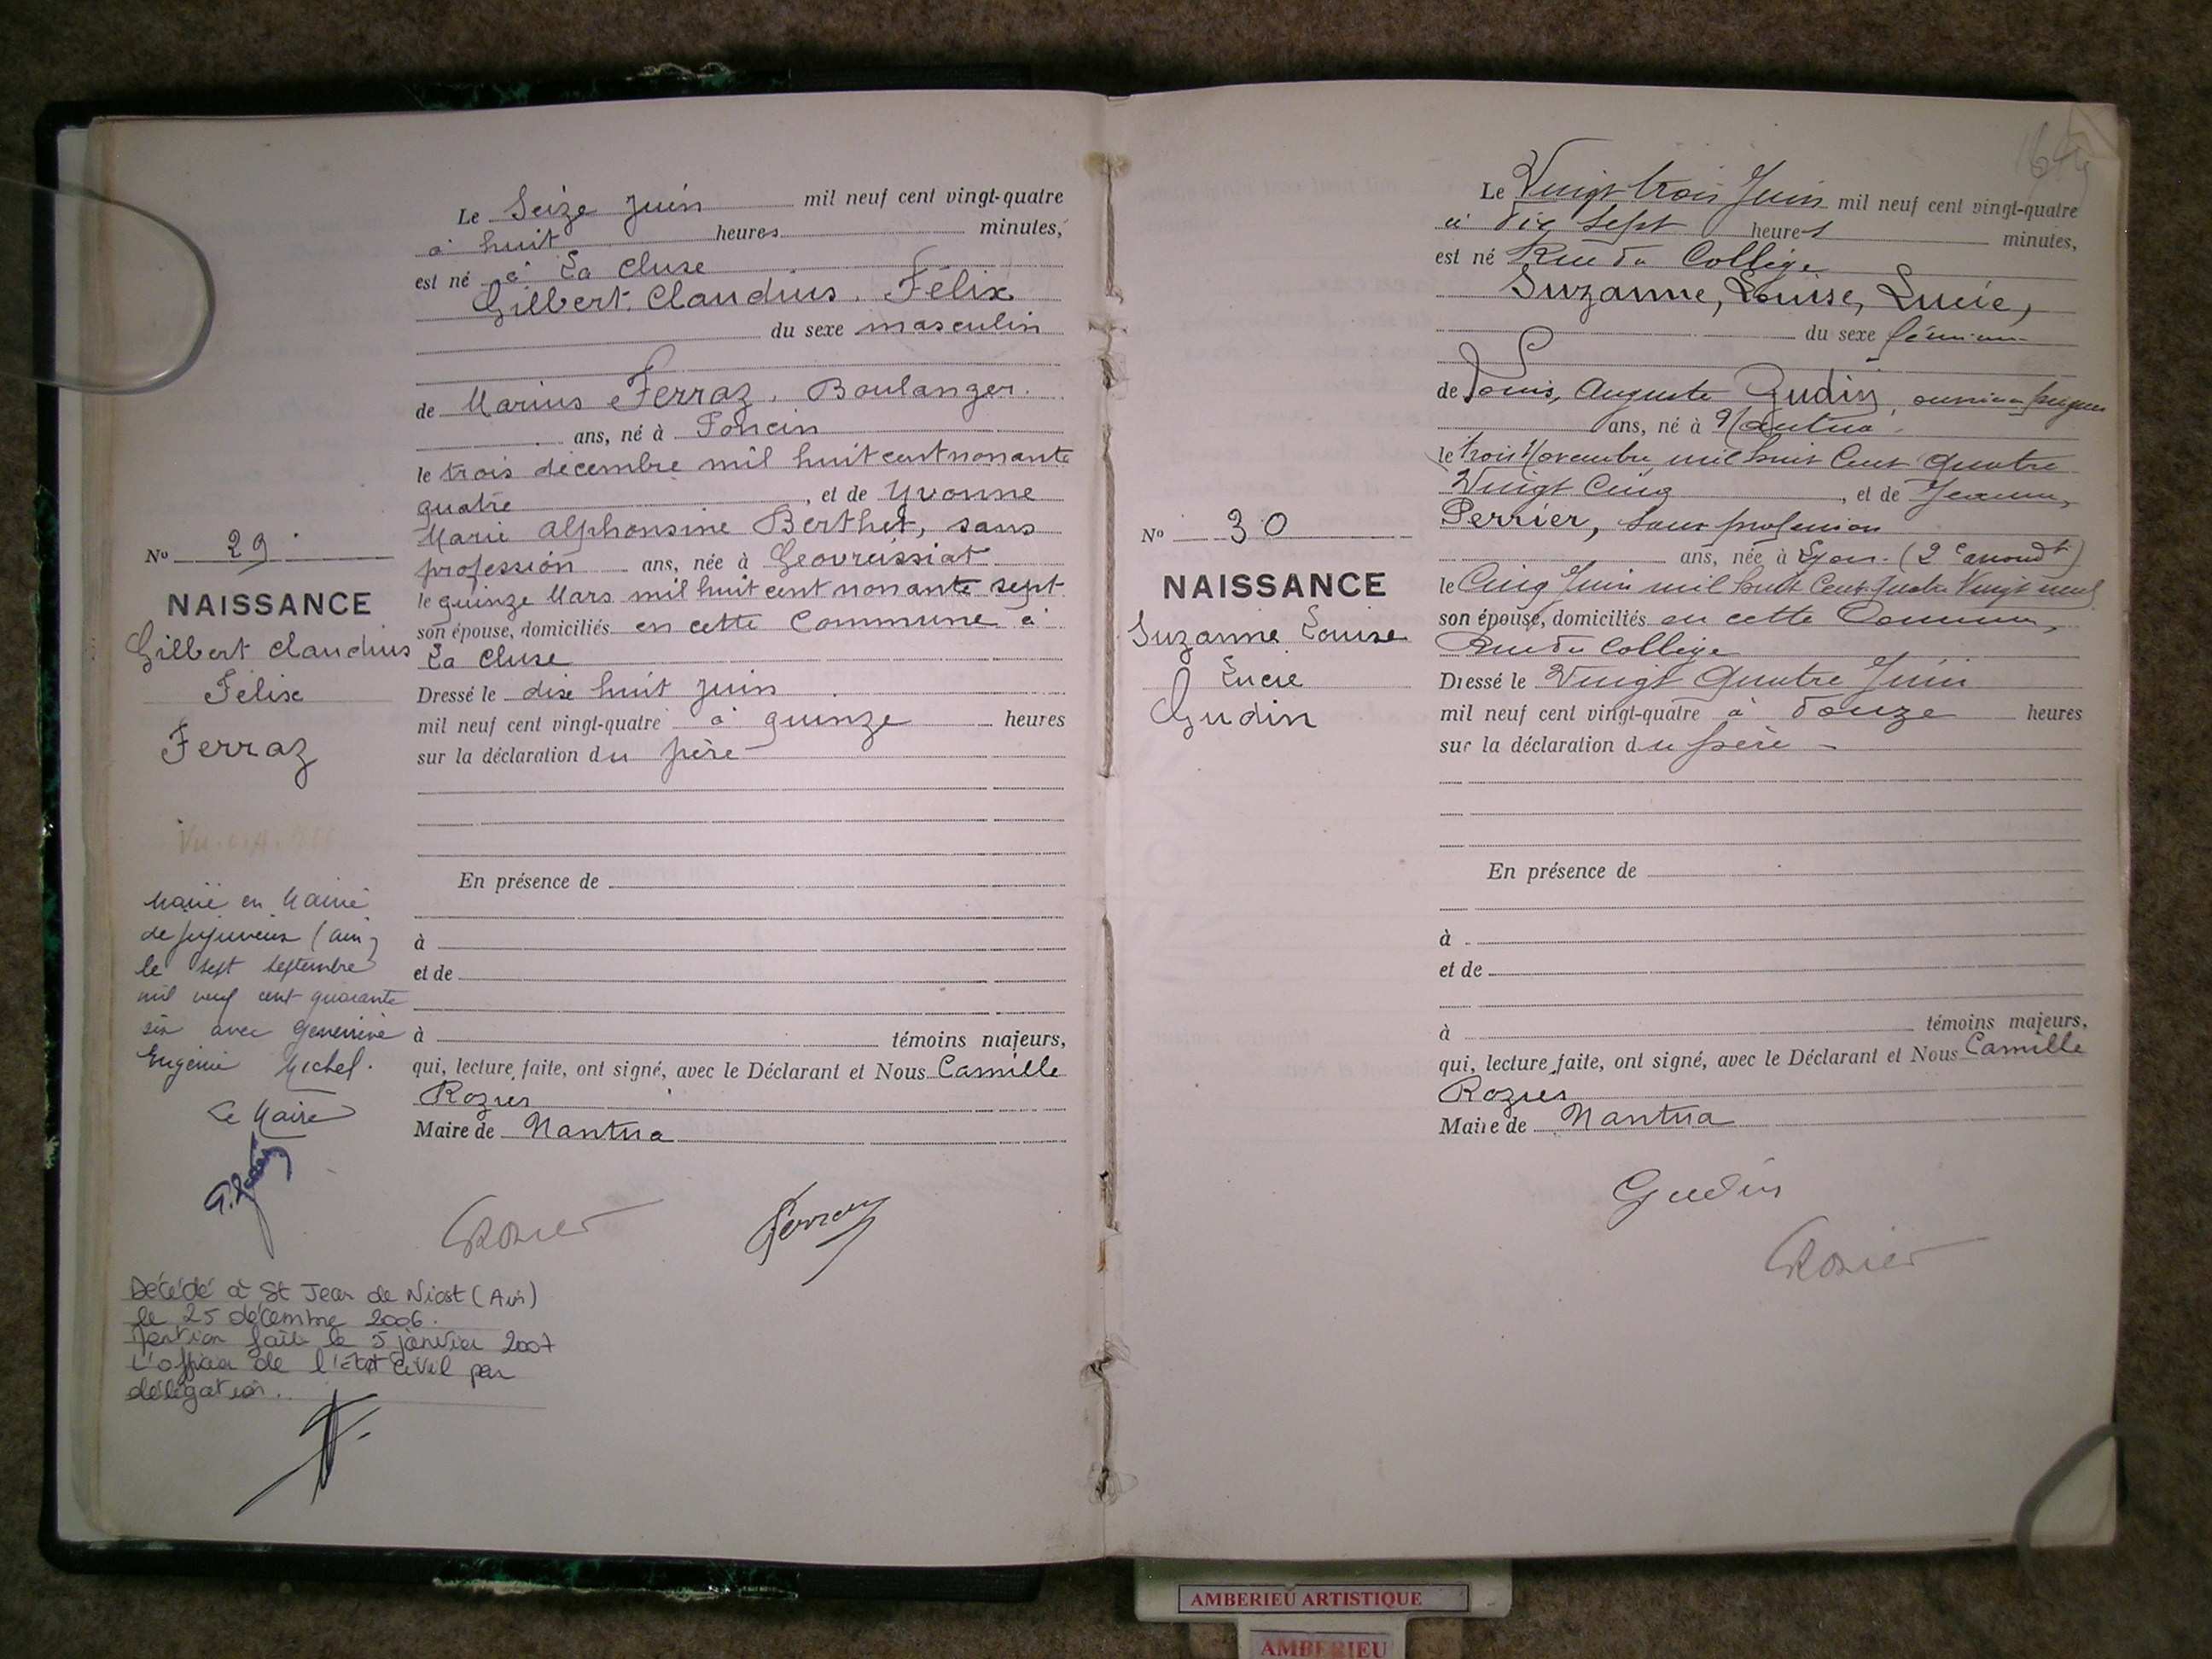 Le Seize juin mil neuf cent vingt-quatre
à huit heures minutes,
est né à La Cluse
Gilbert. Claudius. Félix
du sexe masculin
de Marius Ferraz, Boulanger.
ans, né à Poncin
le trois décembre mil huit cent nonante
quatre, et de Yvonne
Marie Alphonsine Berthet, sans
profession ans, née à Géovreissiat
le quinze Mars mil huit cent nonante sept
son épouse, domiciliés en cette Commune à
La Cluse
Dressé le dix huit juin
mil neuf cent vingt-quatre à quinze heures
sur la déclaration du père
En présence de
à
et de
à témoins majeurs,
qui, lecture faite, ont signé, avec le Déclarant et Nous Camille
Rozier
Maire de Nantua
Rosier
Ferraz
No 29
NAISSANCE
Gilbert Claudius
Félix
Ferraz
Marié en Mairie
de Jujurieux (Ain)
le sept septembre
mil neuf cent quarante
six avec Geneviève
Eugénie Michel.
Le Maire
Décédé à St Jean de Niost (Ain)
le 25 décembre 2006.
Mention faite le 5 janvier 2007
L'officier de l'Etat Civil par
délégation.
Le Vingt trois Juin mil neuf cent vingt-quatre
à dix sept heures minutes,
est né Rue du Collège
Suzanne, Louise, Lucie,
du sexe féminin
de Louis, Auguste Gudin, ouvrier
ans, né à Nantua
le trois Novembre mil huit Cent Quatre
Vingt Cinq, et de Jeanne,
Perrier, sans profession
ans, née à Lyon. (2e arrondt)
le Cinq Juin mil huit Cent Quatre Vingt neuf
son épouse, domiciliés en cette Commune,
Rue du Collège
Dressé le Vingt Quatre Juin
mil neuf cent vingt-quatre à douze heures
sur la déclaration du père
En présence de
à
et de
à témoins majeurs,
qui, lecture faite, ont signé, avec le Déclarant et Nous Camille
Rozier
Maire de Nantua
Gudin
Rosier
No 30
NAISSANCE
Suzanne Louise
Lucie
Gudin
AMBERIEU ARTISTIQUE
AMBERIEU